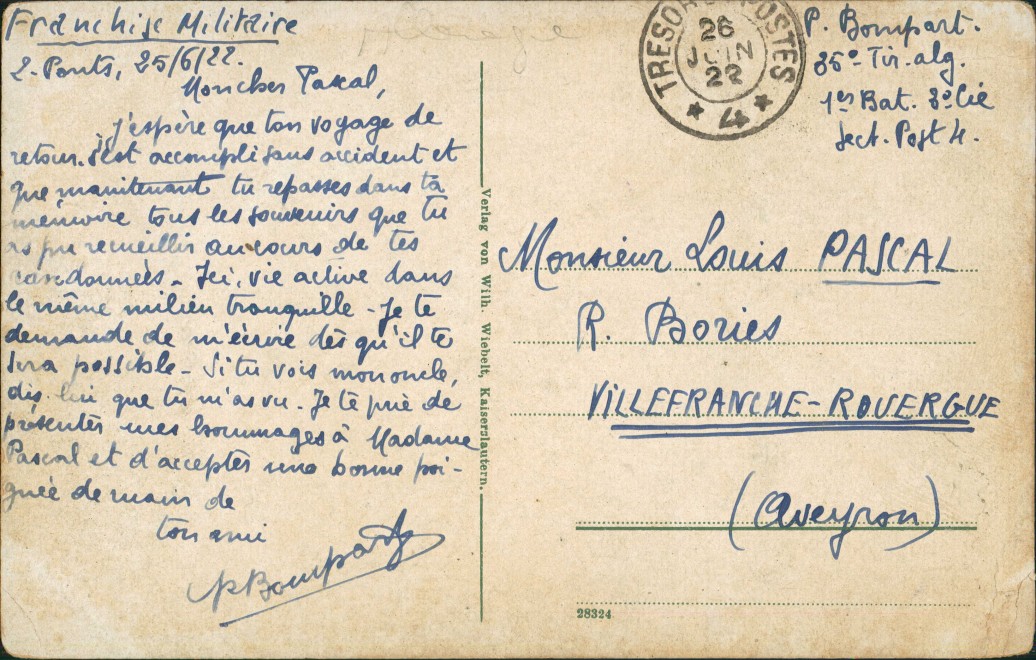 Franchise Militaire
2. Ponts, 25/6/22.
Mon cher Pascal,
j'espère que ton voyage de
retour s'est accompli sans accident et
que maintenant tu repasses dans ta
mémoire tous les souvenirs que tu
as pu recueillir au cours de tes
randonnées - Ici, vie active dans
le même milieu tranquille - Je te
demande de m'écrire dès qu'il te
sera possible - Si tu vois mon oncle,
dis-lui que tu m'as vu. Je te prie de
présenter mes hommages à Madame
Pascal et d'accepter une bonne poi-
gnée de main de
ton ami
P Bompart
Verlag von Wilh. Wiebelt, Kaiserslautern.
TRESOR POSTES
26
JUIN
22
* 4 *
P. Bompart.
35e Tir. alg.
1er Bat. 3e Cie
Sect. Post 4.
Monsieur Louis PASCAL
R. Bories
VILLEFRANCHE-ROUERGUE
(Aveyron)
28324